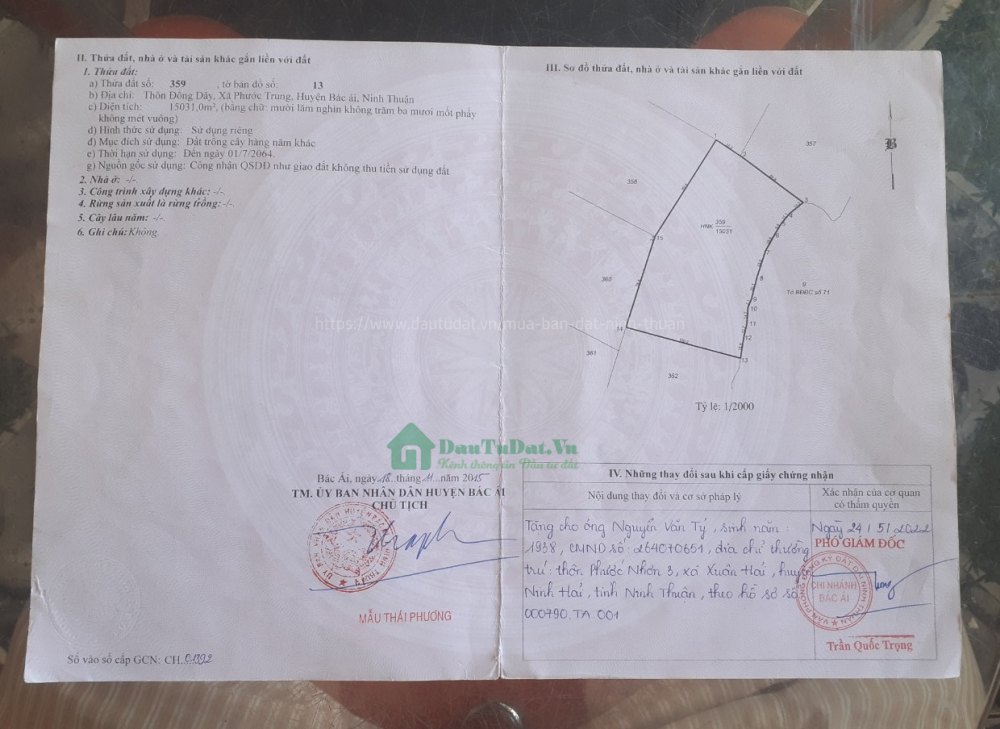 II. Thửa đất, nhà ở và tài sản khác gắn liền với đất
1. Thửa đất:
a) Thửa đất số: 359 , tờ bản đồ số: 13
b) Địa chỉ: Thôn Đồng Dày, Xã Phước Trung, Huyện Bác ái, Ninh Thuận
c) Diện tích: 15031,0m², (bằng chữ: mười lăm nghìn không trăm ba mươi mốt phẩy
không mét vuông)
d) Hình thức sử dụng: Sử dụng riêng
đ) Mục đích sử dụng: Đất trồng cây hàng năm khác
e) Thời hạn sử dụng: Đến ngày 01/7/2064.
g) Nguồn gốc sử dụng: Công nhận QSDĐ như giao đất không thu tiền sử dụng đất
2. Nhà ở: -/-.
3. Công trình xây dựng khác: -/-.
4. Rừng sản xuất là rừng trồng: -/-.
5. Cây lâu năm: -/-.
6. Ghi chú: Không.
Bác Ái, ngày 18 tháng 11 năm 2015
TM. ỦY BAN NHÂN DÂN HUYỆN BÁC ÁI
CHỦ TỊCH
MẪU THÁI PHƯƠNG
Số vào sổ cấp GCN: CH.01392
III. Sơ đồ thửa đất, nhà ở và tài sản khác gắn liền với đất
B
357
358
359
HNK 15031
360
9
Tờ BĐĐC số 71
361
362
5
6
7
8
9
10
11
12
13
14
15
Tỷ lệ: 1/2000
https://www.dautudat.vn/mua-ban-dat-ninh-thuan
DauTuDat.Vn
Kênh thông tin Đầu tư đất
IV. Những thay đổi sau khi cấp giấy chứng nhận
Nội dung thay đổi và cơ sở pháp lý
Xác nhận của cơ quan
có thẩm quyền
Tặng cho ông Nguyễn Văn Tý, sinh năm:
1938, CMND số: 264070651, địa chỉ thường
trú: thôn Phước Nhơn 3, xã Xuân Hải, huyện
Ninh Hải, tỉnh Ninh Thuận, theo hồ sơ số
000790.TA.001
Ngày 24/5/2022
PHÓ GIÁM ĐỐC
VĂN PHÒNG ĐĂNG KÝ ĐẤT ĐAI NINH THUẬN
CHI NHÁNH
BÁC ÁI
Trần Quốc Trọng